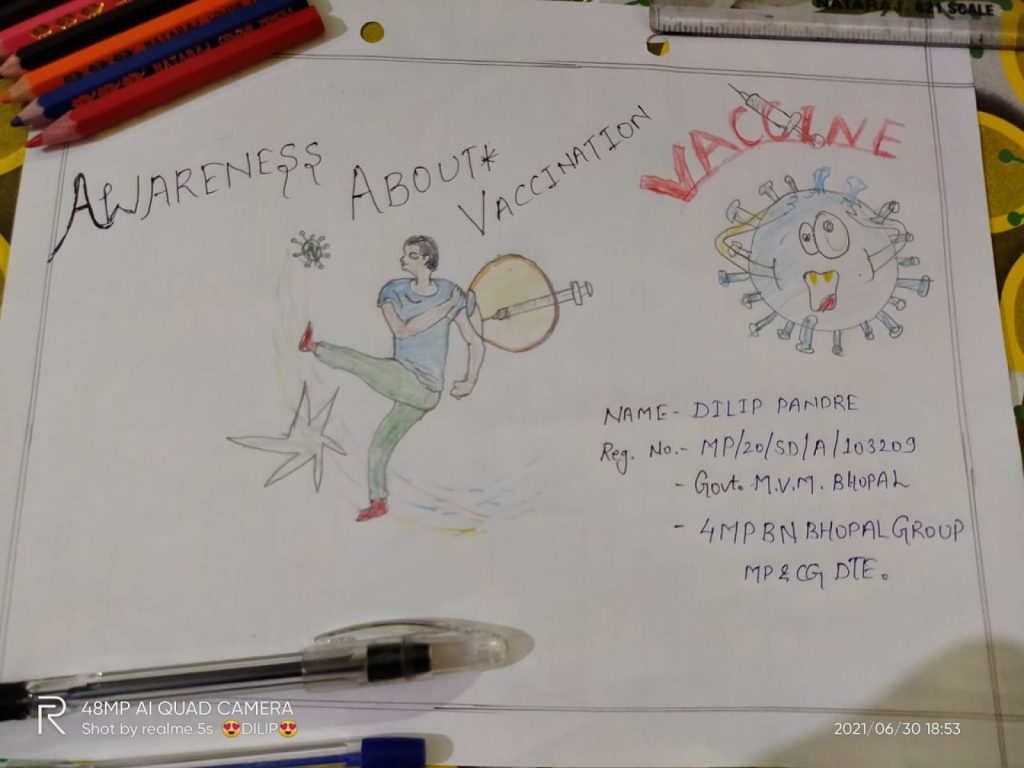 NATARAJ COLOUR PENCIL
NATARAJ 621 SCALE
AWARENESS ABOUT*
VACCINATION
VACCINE
NAME - DILIP PANDRE
Reg. No. - MP/20/SD/A/103209
- Govt. M.V.M. BHOPAL
- 4MP BN BHOPAL GROUP
MP & CG DTE.
R
48MP AI QUAD CAMERA
Shot by realme 5s 😍DILIP😍
2021/06/30 18:53